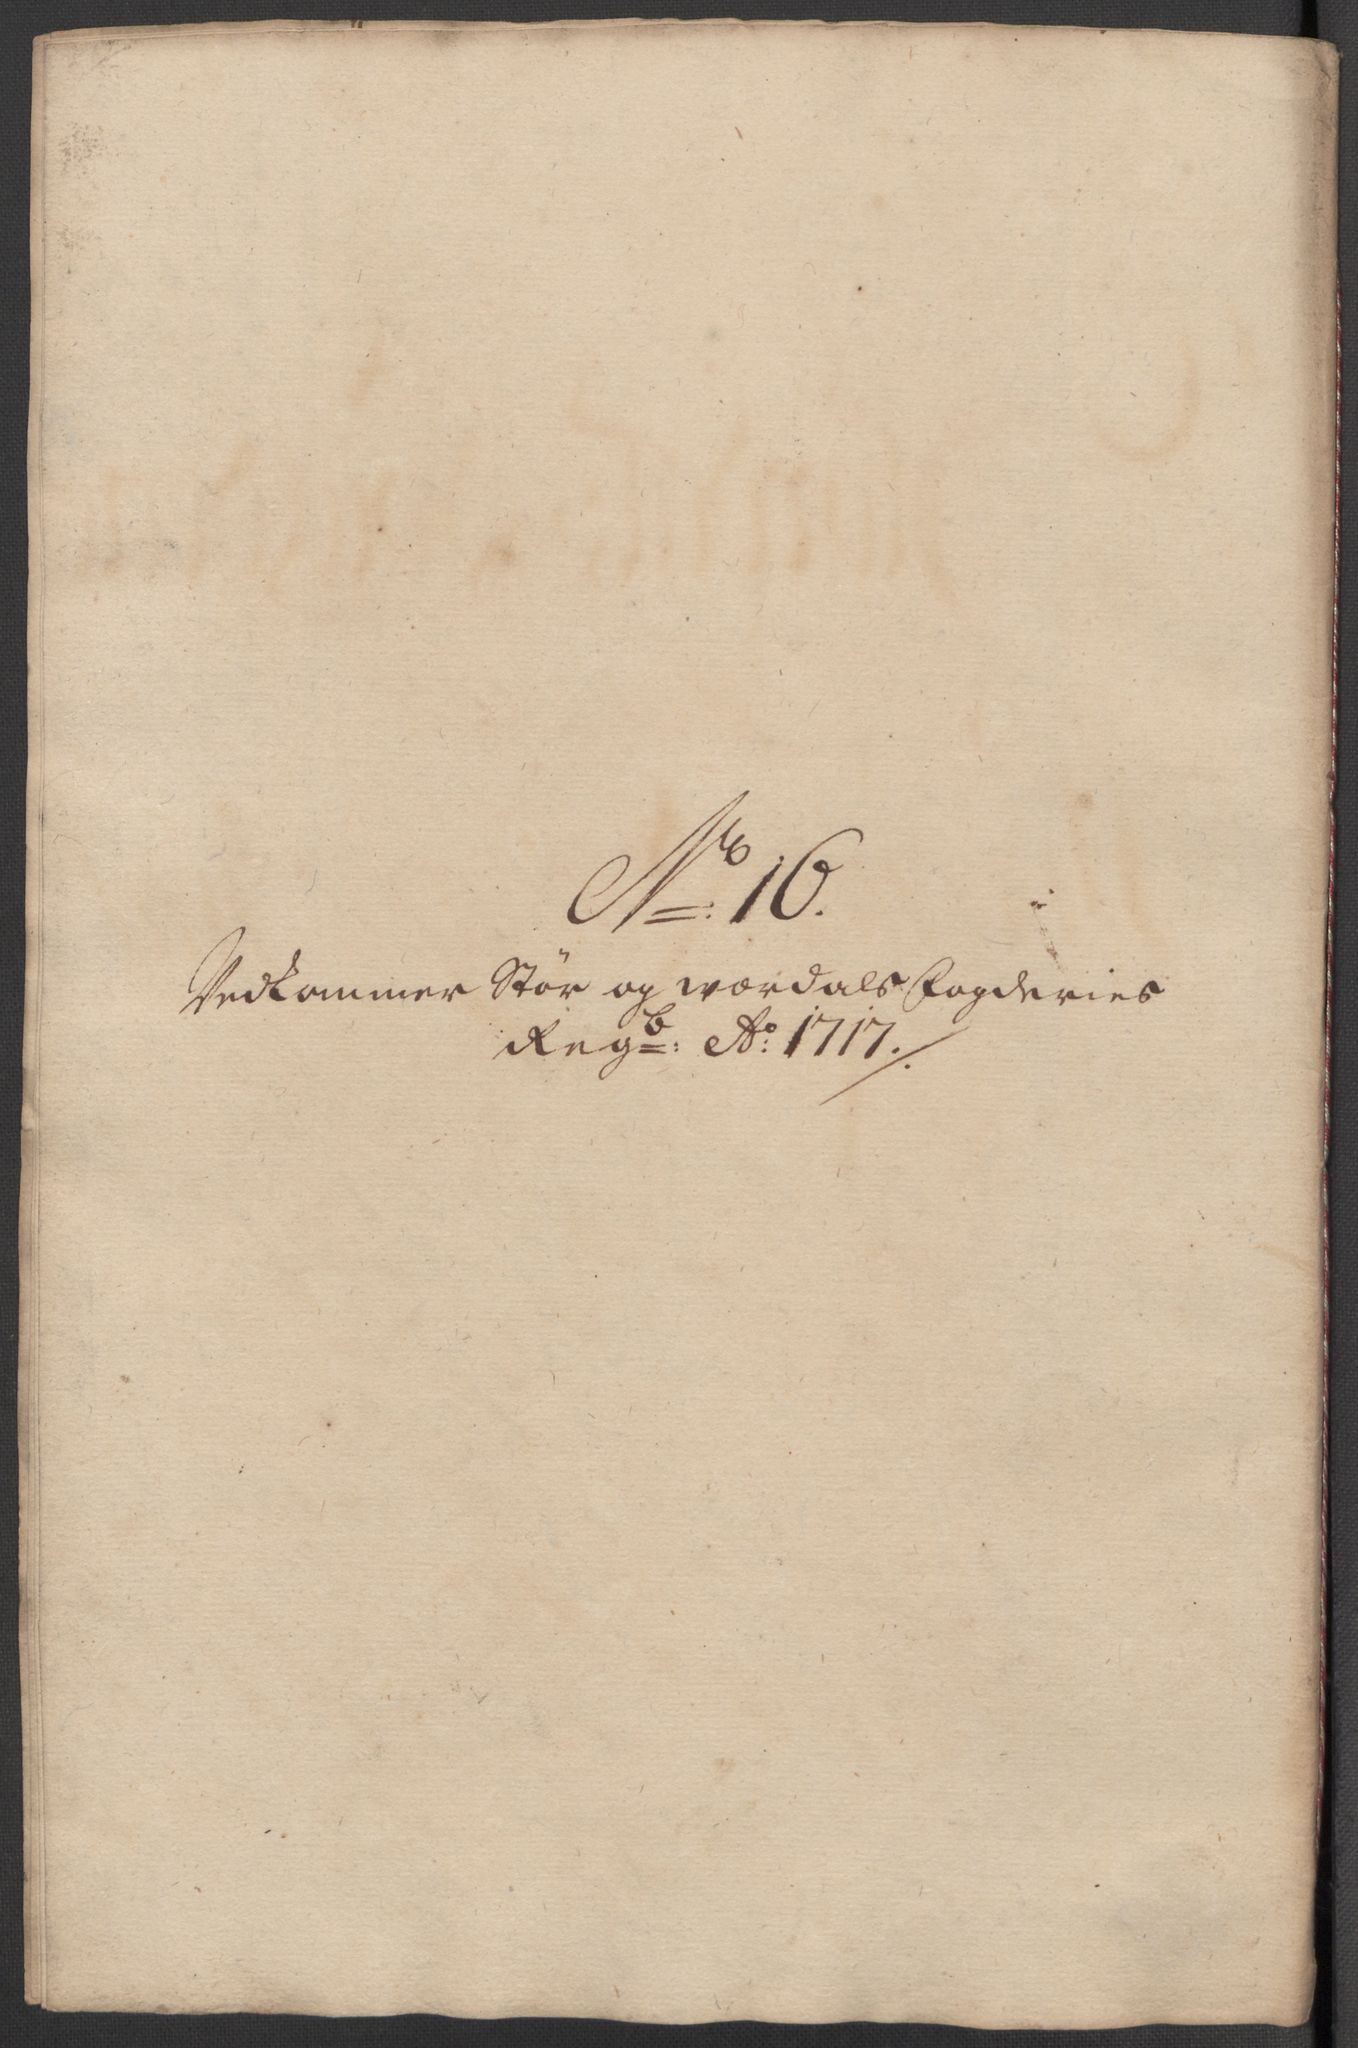 No: 16.
Vedkommer Stör ogværdals Fogderies
Regb: Ao: 1717.